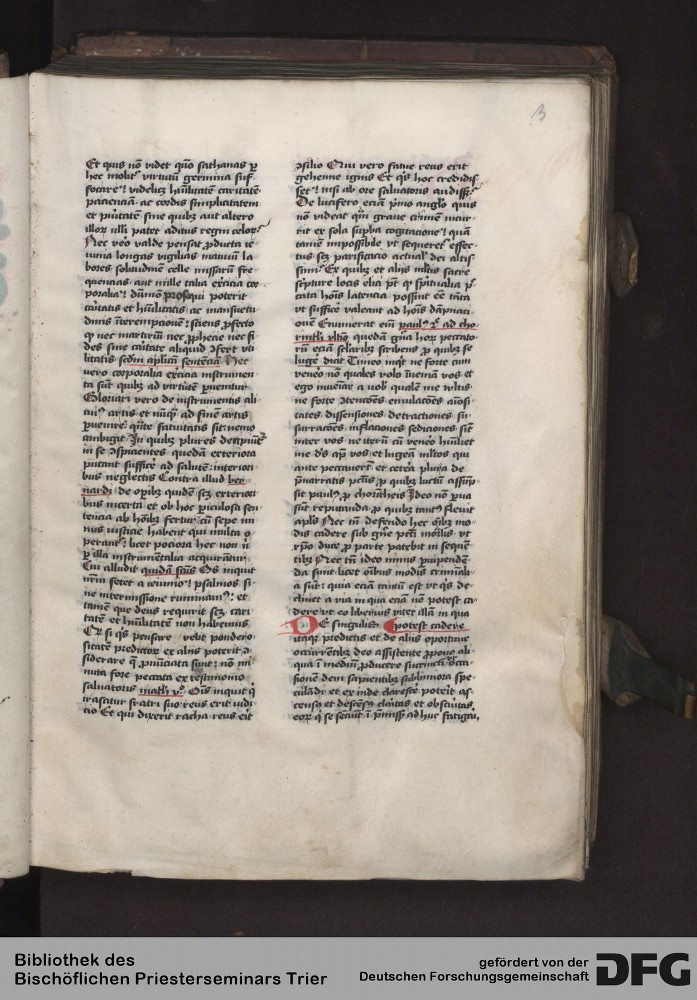 3
Et quis nō videt quō sathanas ꝑ
hec molit᷑ virtutū germina suf
focare? videlicꝫ hūilitatē caritatē
pacienciā ac cordis simplicitatem
et puritatē sine quibꝫ aut altero
illoꝝ nlli patet aditus regni celoꝝ
Nec vero valde pensat ꝓducta ie
iunia longas vigilias manuū la
bores solitudinē celle missarū fre
quencias aut mille talia exercia cor
poralia? dūmō ꝓsequi poterit
caritatis et hūilitatis ac mansuetu
dinis īteremptionē? sciens ꝓfecto
ꝙ nec martiriū nec ꝓphecie nec fi
des sine caritate aliquid ꝯfert vti
litatis scdm aplicā sentenciā Nec
vero corporalia exercia instrumen
ta sūt quibꝫ ad virtutē ꝑuenitur
Gloriari vero de instrumentis ali
cuiꝰ artis et nūqꝫ ad finē artis
ꝑuenire quāte fatuitatis sit nemo
ambigit In quibꝫ plures
se ꝯspicientes quedā exteriora
putant sufficẽ ad salutē interiori
bus neglectis Contra illud ber
nardi de oꝑibꝫ quidē scꝫ exteriori
bus incerta et ob hoc ꝑiculosa sen
tencia ab hōibꝫ fertur cū sepe mi
nus iusticie habent qui multa o
perant᷑ licet pociora hec non nisi
ꝑ illa instrumētalia acquirātur
Cui alludit quidā scūs Os inquit
meū fetet a ieiunio psalmos si
ne intermissione ruminam? et
tamen que deus requirit scꝫ cari
tatē et hūilitatē non habemus
Cꝫ si qͥs pensare velit pondero
sitatē predictoꝝ ex aliis poterit ꝯ
siderare ꝙ ꝓnūciata sunt nō mi
nuta fore peccata ex testimonio
saluatoris mathꝫ vº Oīs inquit qͥ
irascitur fratri suo reus erit iudi
cio Et qui dixerit racha reus erit
ꝯsilio Qui vero fatue reus erit
gehenne ignis Et qͥs hoc credidis
set? nisi ab ore saluatoris audisset
De lucifero eciā pͥmo anglo quis
nō videat qͣm graue crimen incur
rit ex sola supbia cogitacione? quā
tamē impossibile vt sequeret᷑ effec
tus scꝫ parificacio actualꝭ dei altis
simi Ex quibꝫ et aliis ml̄tis sacre
scripture locis elici pͭ ꝙ spūalia pc̄
cata hōis latencia possūt eē tāta
vt sufficẽ valeant ad hoīs dāpnaci
onē Enumerat enī paulꝰ 2ͣ ad cho
rinth vltīo quedā gn̄a hoꝝ peccato
rū eciā solaribꝫ scribens ꝓ quibꝫ se
lugẽ dicit Timeo inqͭ ne forte cum
venero nō quales volo īueniā vos et
ego inueniar a vobis qualē me nl̄tis
ne forte ꝯtenciōes emulacōes aīosi
tates dissensiones detractiones su
surraciōes inflaciones sediciones sint
inter vos ne iterū cū venero hūiliet
me dꝰs apͩ vos et lugeā ml̄tos qui
ante peccauerūt et cetera plura de
p̄narratis pctīs ꝓ quibꝫ luctū assūp
sit paulꝰ ꝓ chorītheis Ideo nō parua
sūt reputanda ꝓ quibꝫ tantꝰ fleuit
aplūs Nec tn̄ defendo hec oībꝫ mo
dis cadere sub gn̄e pctī mortalꝭ vt
xp̄o duce ꝓ parte patebit in sequen
tibꝫ Nec tn̄ ideo minus
da sunt licet oībus modis criminali
a sūt quia eciā tantū est vt qͥs de
clinet a via in qua eciā nō potest ca
dere vt eo liberius vitet illā in qua
potest cadere
DE singulis
itaqꝫ predictis et de aliis oportune
occurrētibꝫ deo assistente ꝓpono ali
qua ī mediū ꝓducere succinctū occa
sionem dem sapientibꝫ sublimiora spe
culādi et ex inde clarescẽ poterit as
censꝰ et descēsꝰ claritas et obscuritas
eoꝝ qͥ se sciūt ī p̄missis adhuc fatigari
Bibliothek des
Bischöflichen Priesterseminars Trier
gefördert von der
Deutschen Forschungsgemeinschaft
DFG